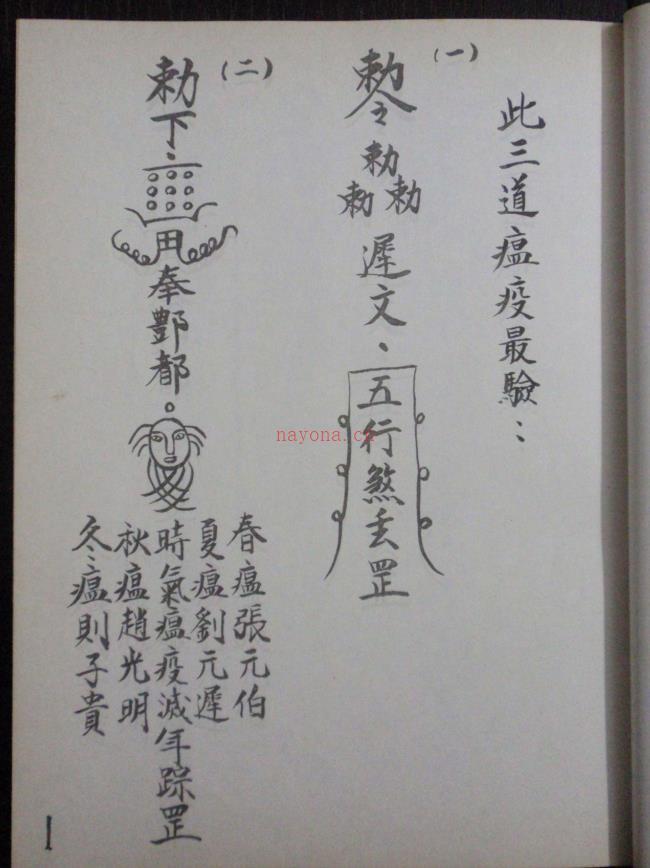 此三道瘟疫最驗：
（一）
勅令
勅
勅勅
遲文、
五行煞
罡
（二）
勅下
奉酆都
春瘟張元伯
夏瘟劉元遲
時氣瘟疫滅年踪罡
秋瘟趙光明
冬瘟則子貴
1
nayona.cn